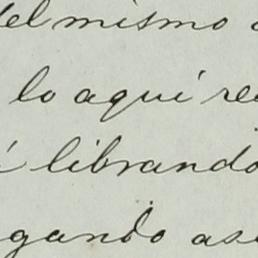 del mismo
lo aquí
librando
gando